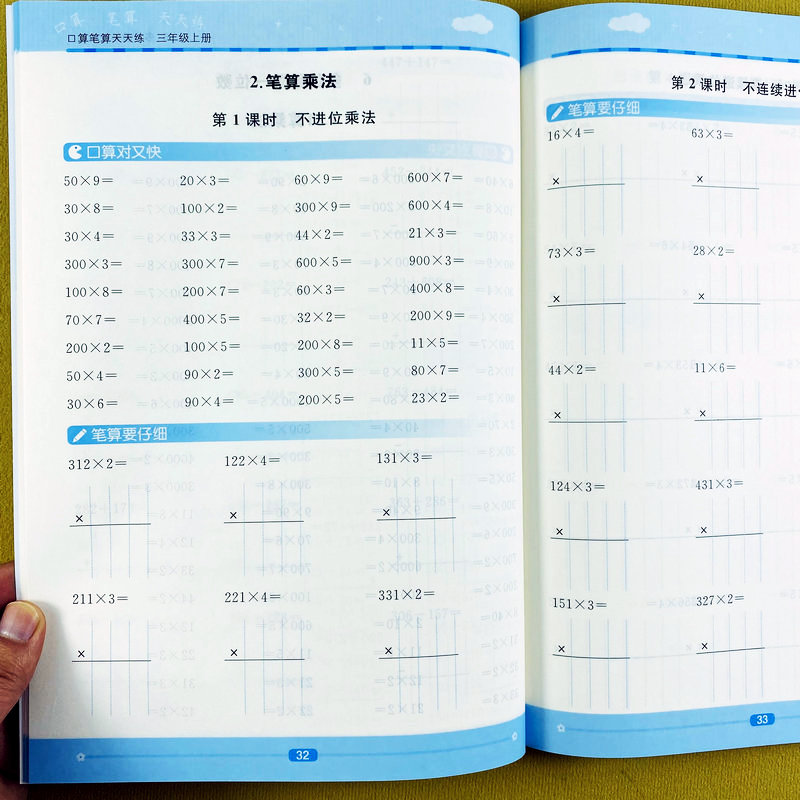 口算 笔算 天天练
口算笔算天天练 三年级上册
2.笔算乘法
第1课时 不进位乘法
口算对又快
50×9= 20×3= 60×9= 600×7=
30×8= 100×2= 300×9= 600×4=
30×4= 33×3= 44×2= 21×3=
300×3= 300×7= 600×5= 900×3=
100×8= 200×7= 60×3= 400×8=
70×7= 400×5= 32×2= 200×9=
200×2= 100×5= 200×8= 11×5=
50×4= 90×2= 300×5= 80×7=
30×6= 90×4= 200×5= 23×2=
笔算要仔细
312×2= 122×4= 131×3=
× × ×
211×3= 221×4= 331×2=
× × ×
32
第2课时 不连续进
笔算要仔细
16×4= 63×3=
× ×
73×3= 28×2=
× ×
44×2= 11×6=
× ×
124×3= 431×3=
× ×
151×3= 327×2=
× ×
33